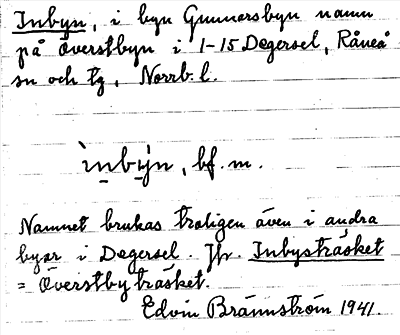 Inbyn, i byn Gunnarsbyn namn
på Överstbyn i 1-15 Degersel, Råneå
sn och tg, Norrb. l.
ìnby̖n, bf. m.
Namnet brukas troligen även i andra
byar i Degersel. Jfr. Inbysträsket
= Överstbyträsket.
Edvin Brännström 1941.